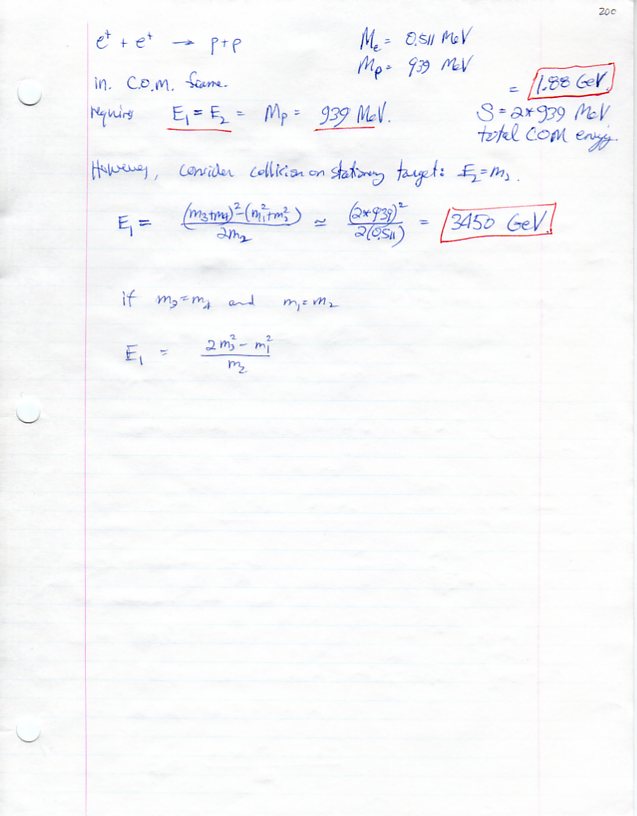 200
e⁺ + e⁺ → p + p
Me = 0.511 MeV
Mp = 939 MeV
in C.O.M. frame.
= 1.88 GeV.
require E₁ = E₂ = Mp = 939 MeV.
S = 2*939 MeV
total COM energy.
However, consider collision on stationary target: E₂=m₂.
E₁ = (m₃+m₄)²-(m₁²+m₂²) / 2m₂ ≃ (2*939)² / 2(0.511) = 3450 GeV.
if m₃=m₄ and m₁=m₂
E₁ = 2m₃² - m₁² / m₂